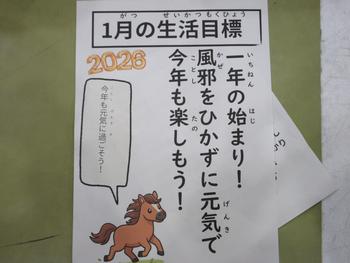 1月の生活目標
がつ せいかつもくひょう
2026
一年の始まり！
いちねん はじ
風邪をひかずに元気で
かぜ げんき
今年も楽しもう！
ことし たの
今年も元気に過ごそう！